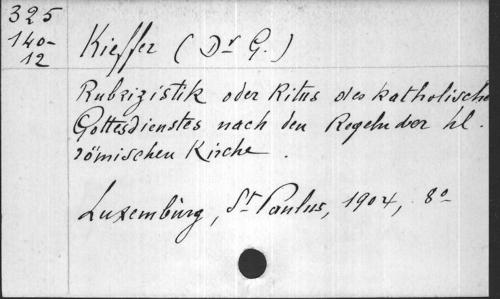 325
140-
12
Kieffer (Dr G.)
Rubrizistik oder Ritus des katholische
Gottesdienstes nach den Regeln der hl.
römischen Kirche.
Luxemburg, St Paulus, 1904, 8º